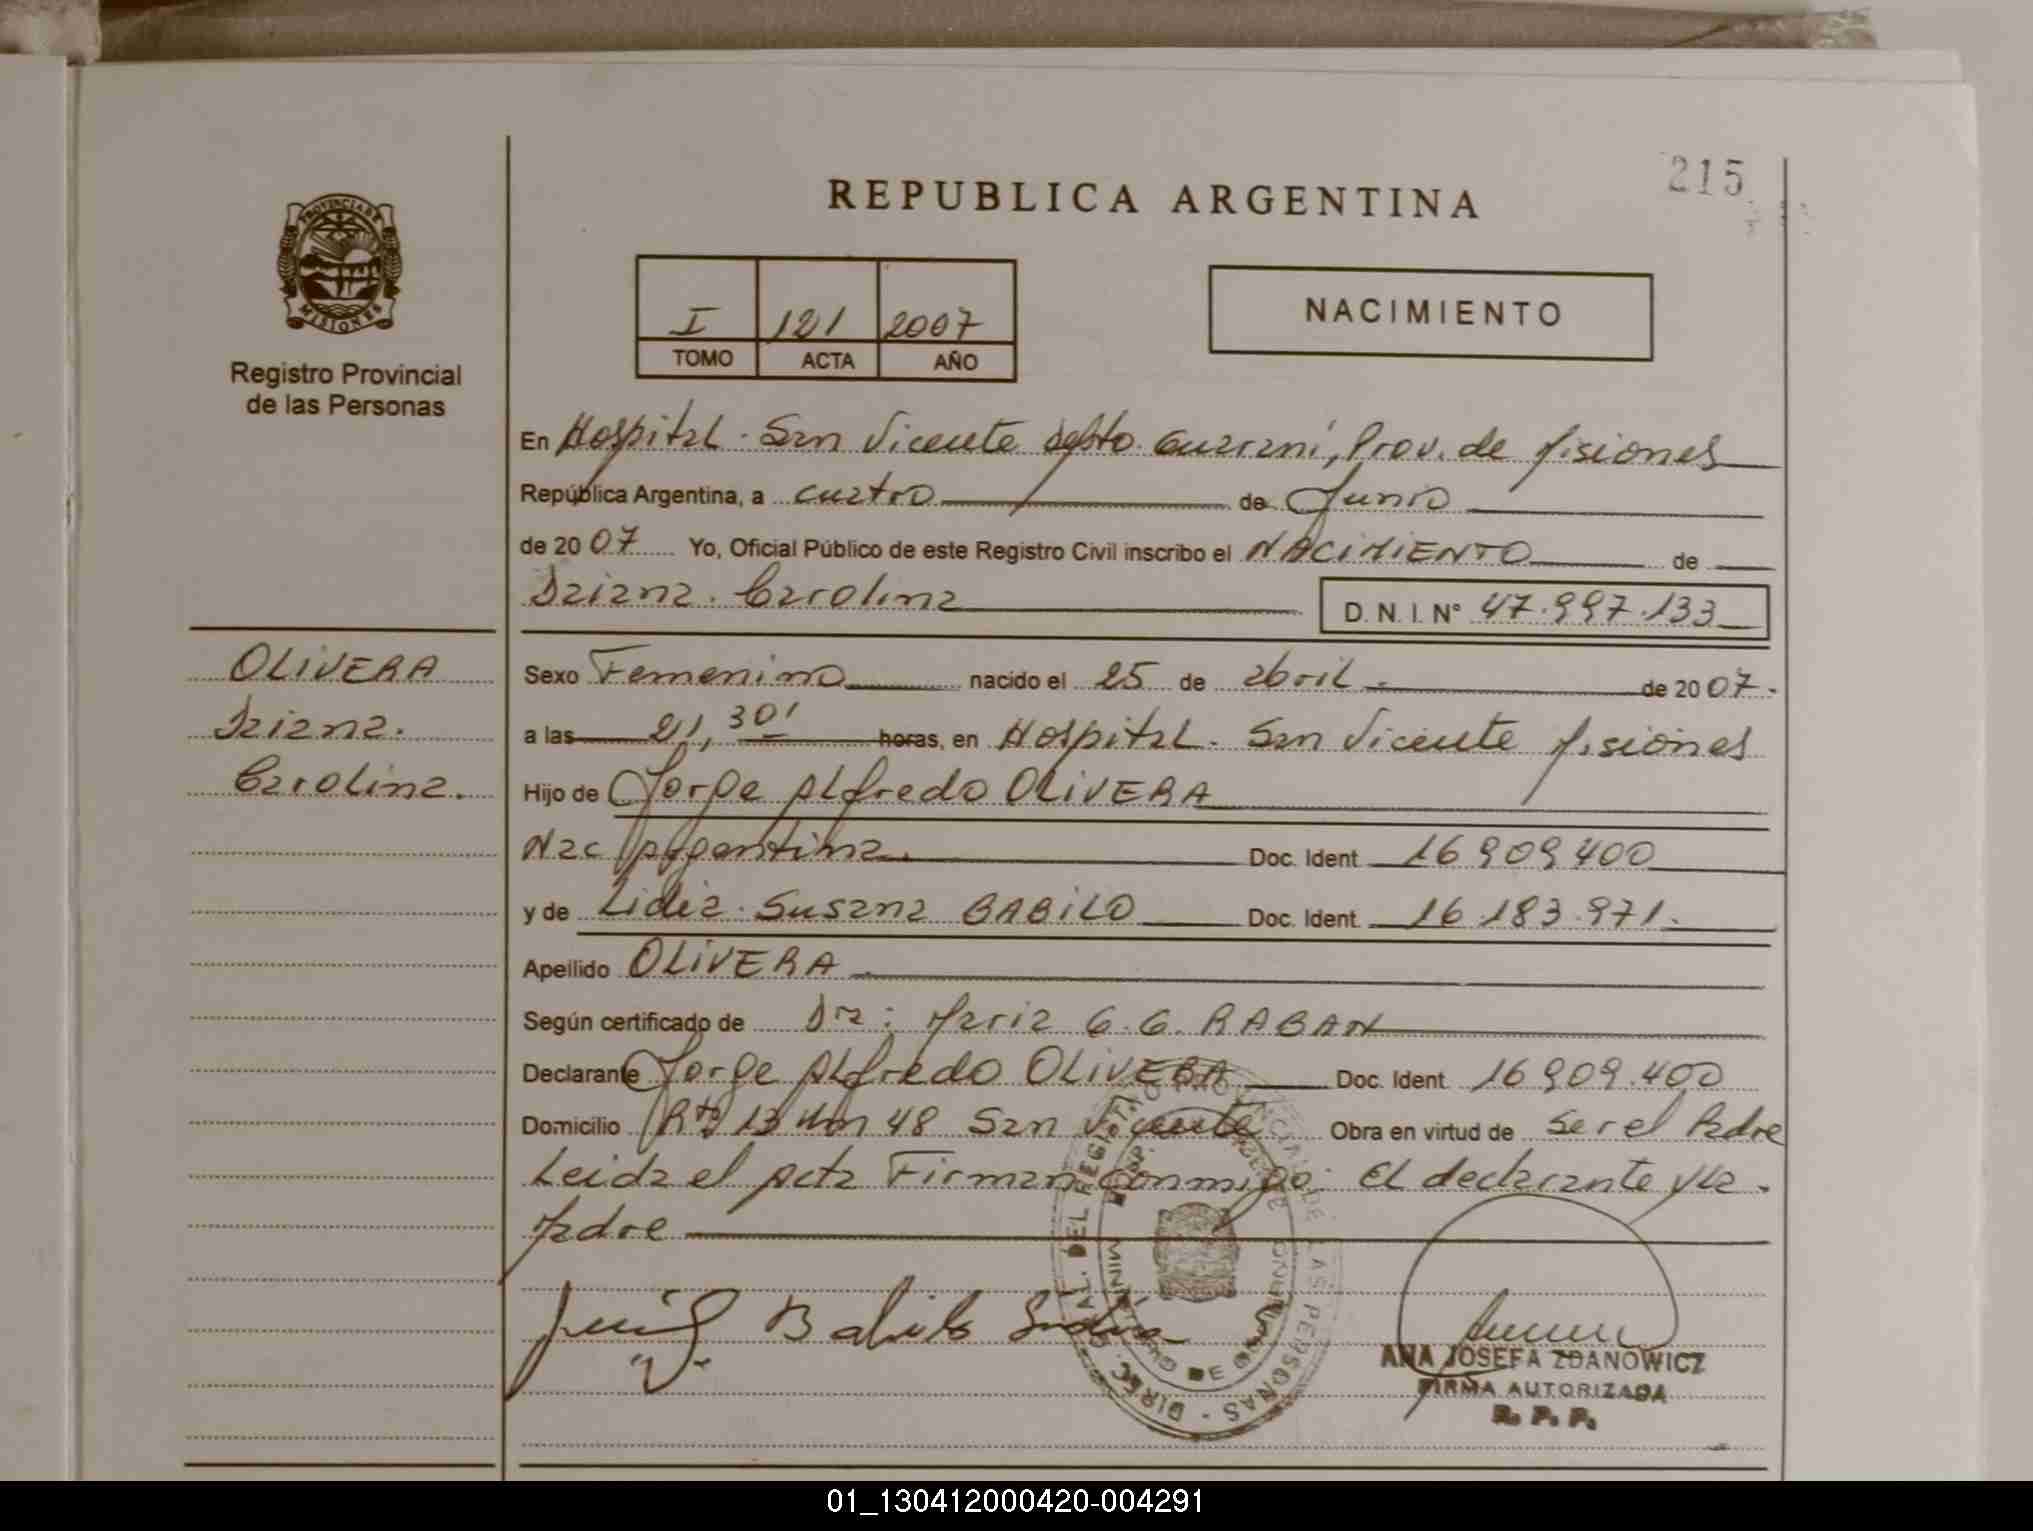 215
REPUBLICA ARGENTINA
PROVINCIA DE
MISIONES
Registro Provincial
de las Personas
I 121 2007
TOMO ACTA AÑO
NACIMIENTO
En Hospital. San Vicente Depto. Guaraní, Prov. de Misiones
República Argentina, a cuatro de Junio
de 2007 Yo, Oficial Público de este Registro Civil inscribo el NACIMIENTO de
Daiana. Carolina
D. N. I. N° 47.997.133
OLIVERA
Daiana.
Carolina.
Sexo Femenino nacido el 25 de abril. de 2007.
a las 21,30' horas, en Hospital. San Vicente Misiones
Hijo de Jorge Alfredo OLIVERA
Nac Argentina. Doc. Ident. 16909400
y de Lidia. Susana BABILO Doc. Ident. 16.183.971.
Apellido OLIVERA
Según certificado de Dra: Maria G. G. RABAN
Declarante Jorge Alfredo OLIVERA Doc. Ident. 16909.400
Domicilio Rta 13 Km 48 San Vicente Obra en virtud de ser el Padre
Leida el Acta Firman conmigo: El declarante y la.
Madre
Babilo Lidia
ANA JOSEFA ZDANOWICZ
FIRMA AUTORIZADA
R. P. P.
01_130412000420-004291